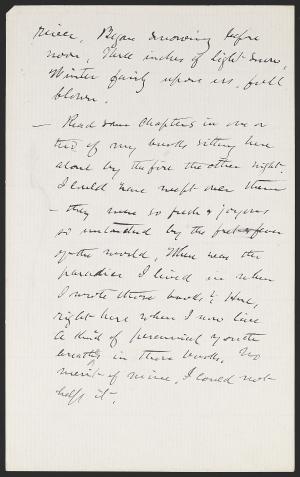 river. Began snowing before
noon, Three inches of light snow,
Winter fairly upon us, full
blown.
— Read some chapters in one or
two of my books sitting here
alone by the fire the other night.
I could have wept over them
— they were so fresh & joyous
so untouched by the fret & fever
of the world. Where was the
paradise I lived in when
I wrote those books? Here,
right here where I now live
A kind of perennial youth
breathes in those books. No
merit of mine, I could not
help it.